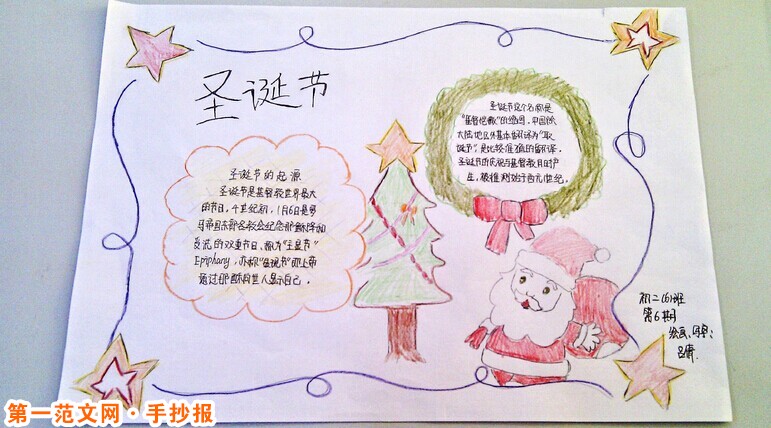 圣诞节
圣诞节的起源
圣诞节是基督教世界最大
的节日。4世纪初，1月6日是罗
马帝国东部各教会纪念耶稣降生和
受洗的双重节日，称为"主显节"
Epiphany，亦称"显现节"即上帝
通过耶稣向世人显示自己。
圣诞节这个名称是
"基督弥撒"的缩写，中国
大陆地区外基本翻译为"耶
诞节"，是比较准确的翻译。
圣诞节的庆祝与
生，被推测始于西元
初二(6)班
第6期
第一范文网·手抄报